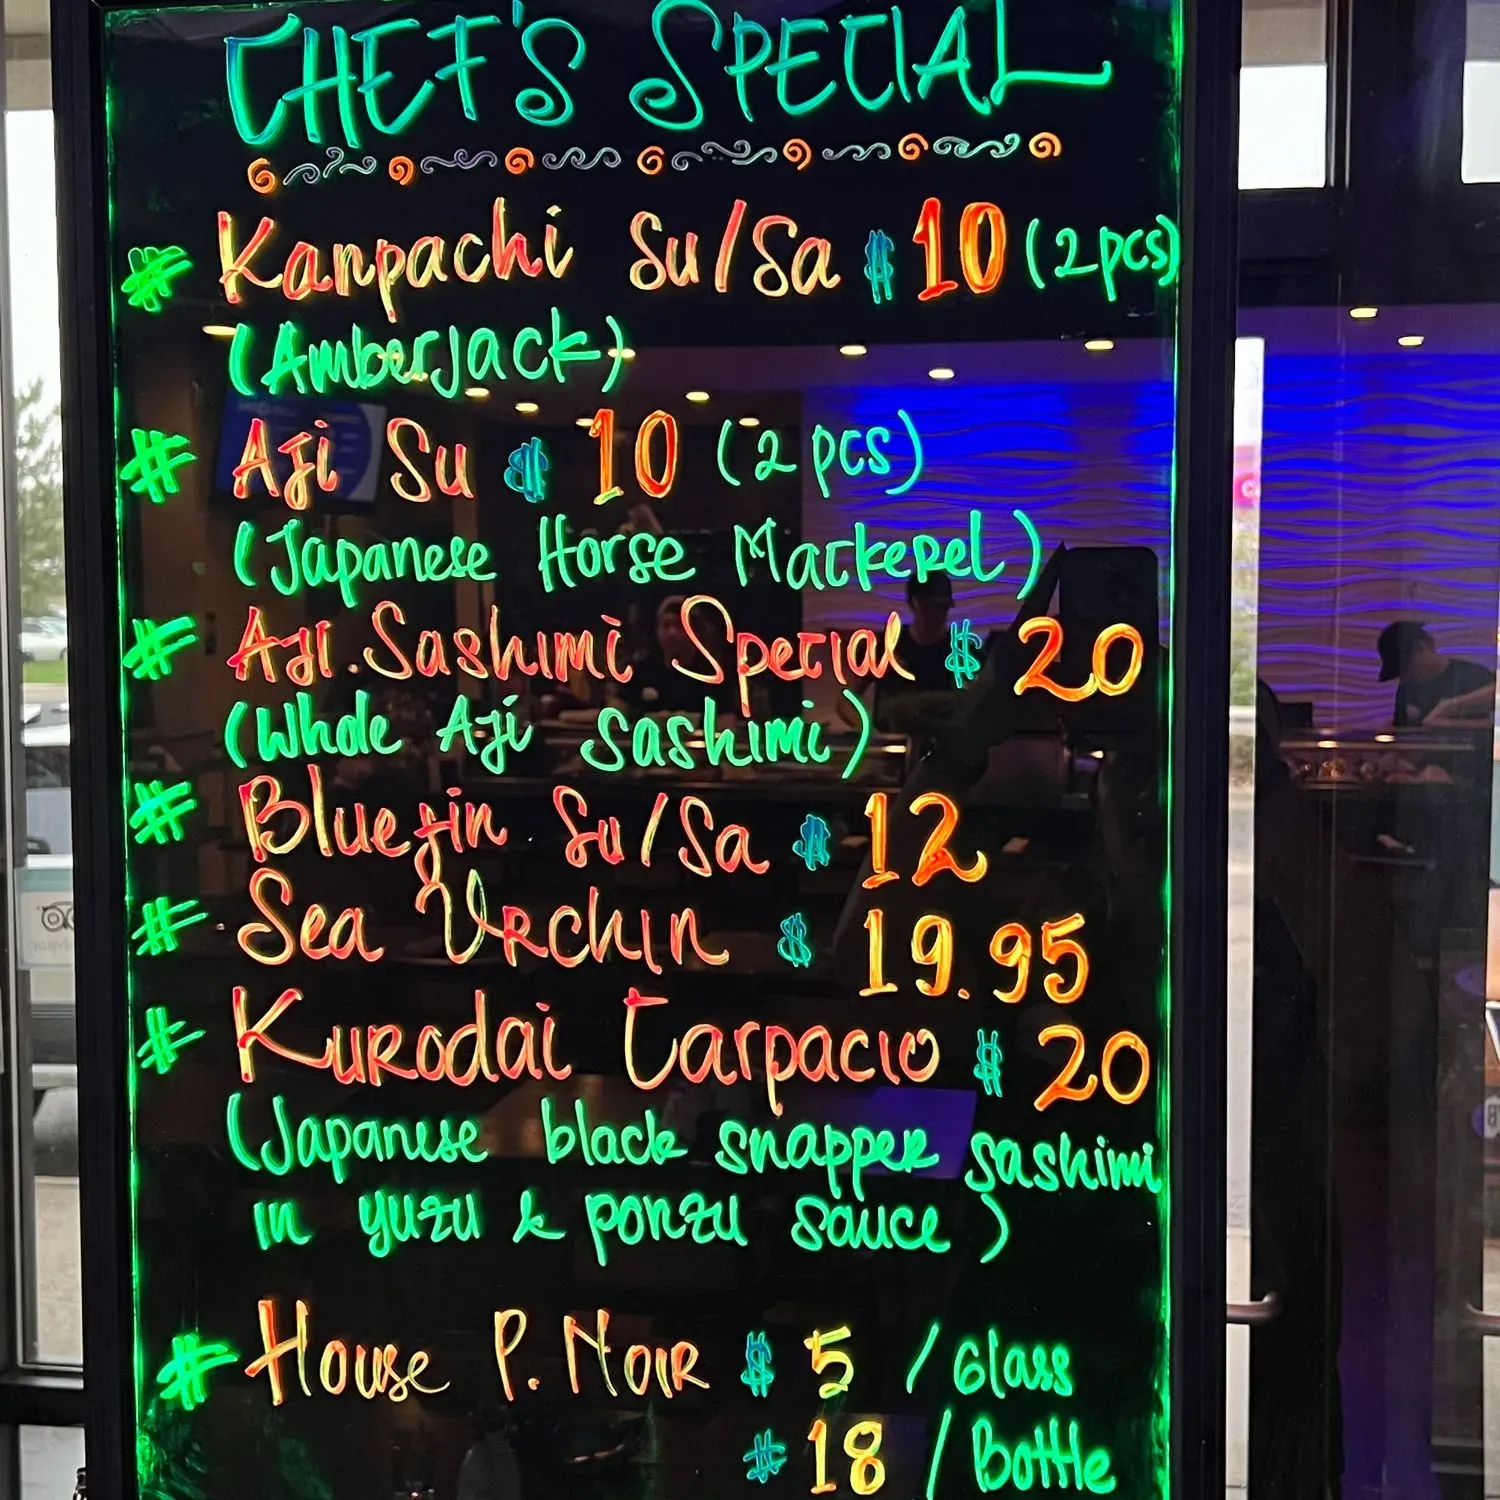 CHEF'S SPECIAL
# Kanpachi Su/Sa $ 10 (2pcs)
(Amberjack)
# Aji Su $ 10 (2 pcs)
(Japanese Horse Mackerel)
# Aji.Sashimi Special $ 20
(Whole Aji Sashimi)
# Bluefin Su/Sa $ 12
# Sea Urchin $ 19.95
# Kurodai Carpacio $ 20
(Japanese black snapper sashimi
in yuzu & ponzu sauce)
# House P. Noir $ 5 / Glass
$ 18 / Bottle